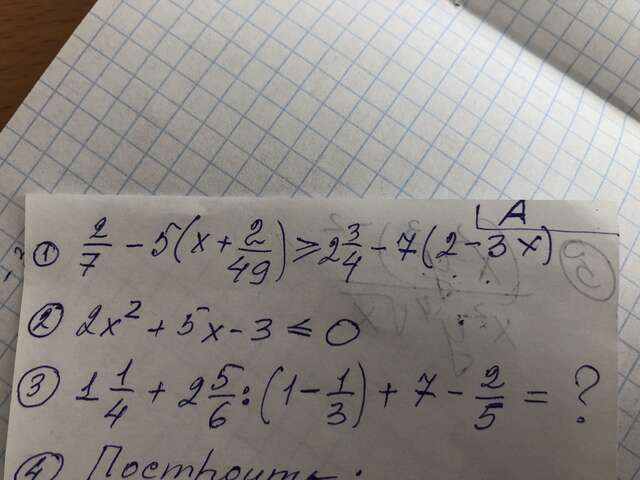 A
① 2/7 - 5(x + 2/49) ≥ 2 3/4 - 7(2 - 3x)
② 2x² + 5x - 3 ≤ 0
③ 1 1/4 + 2 5/6 : (1 - 1/3) + 7 - 2/5 = ?
④ Построить